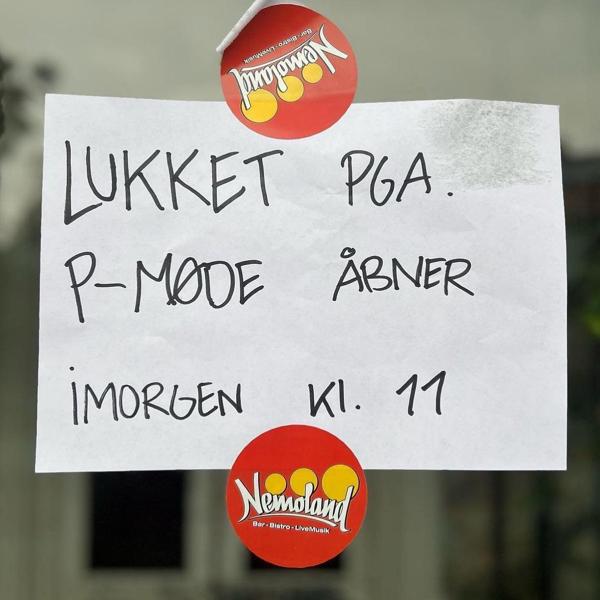 Nemoland
Bar · Bistro · LiveMusik
LUKKET PGA.
P-MØDE ÅBNER
iMORGEN Kl. 11
Nemoland
Bar · Bistro · LiveMusik